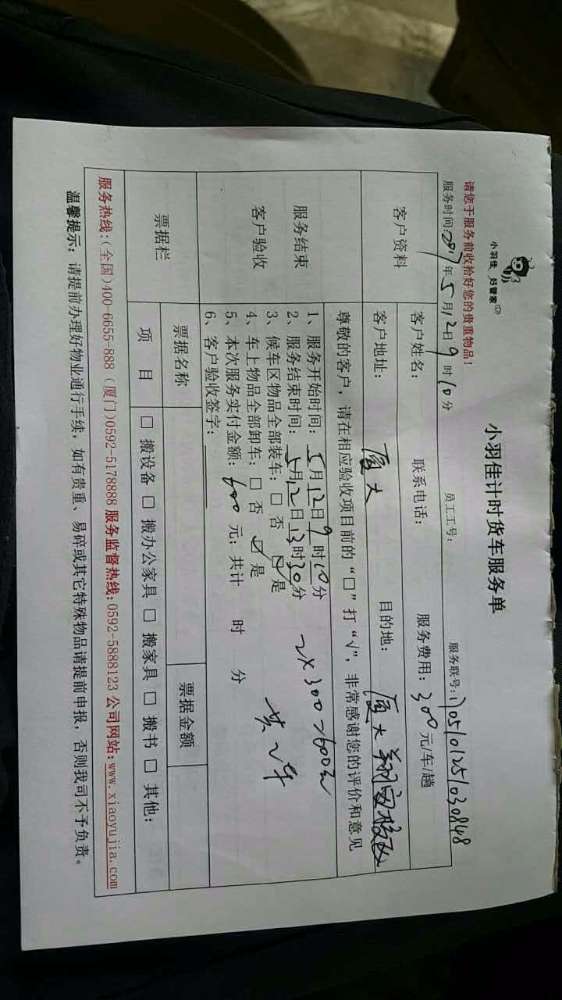 小羽佳 好管家
小羽佳计时货车服务单
请您于服务前收拾好您的贵重物品！
服务时间：2017年5月12日9时10分 员工工号： 服务联号：1705101251030848
客户资料
客户姓名： 联系电话： 服务费用：300元/车/趟
客户地址：厦大 目的地：厦大翔安校区
服务结束
客户验收
尊敬的客户，请在相应验收项目前的“□”打“√”，非常感谢您的评价和意见
1、服务开始时间：5月12日9时10分
2、服务结束时间：5月12日13时30分 2×300=600元
3、候车区物品全部装车：□ 否 ☑ 是
4、车上物品全部卸车：□ 否 ☑ 是 共2车
5、本次服务实付金额：600元；共计 时 分
6、客户验收签字：
票据栏
票据名称 票据金额
项 目 □ 搬设备 □ 搬办公家具 □ 搬家具 □ 搬书 □ 其他：
服务热线：(全国)400-6655-888 (厦门)0592-5178888 服务监督热线：0592-5888123 公司网站：www.xiaoyujia.com
温馨提示：请提前办理好物业通行手续，如有贵重、易碎或其它特殊物品请提前申报，否则我司不予负责。